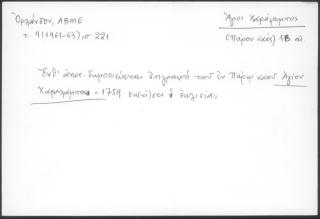 Ὀρλάνδον, ΑΒΜΕ
τ. 9 (1961-63), σ 221
Ἅγιος Χαράλαμπος
(Πάρου ναός) 18 αἰ.
Ἔνθ' ἀνωτ. δημοσιεύεται ἐπιγραφή τοῦ ἐν Πάρῳ ναοῦ Ἁγίου
Χαραλάμπους - 1759 κτίσεως ἡ ἐκκλησία.